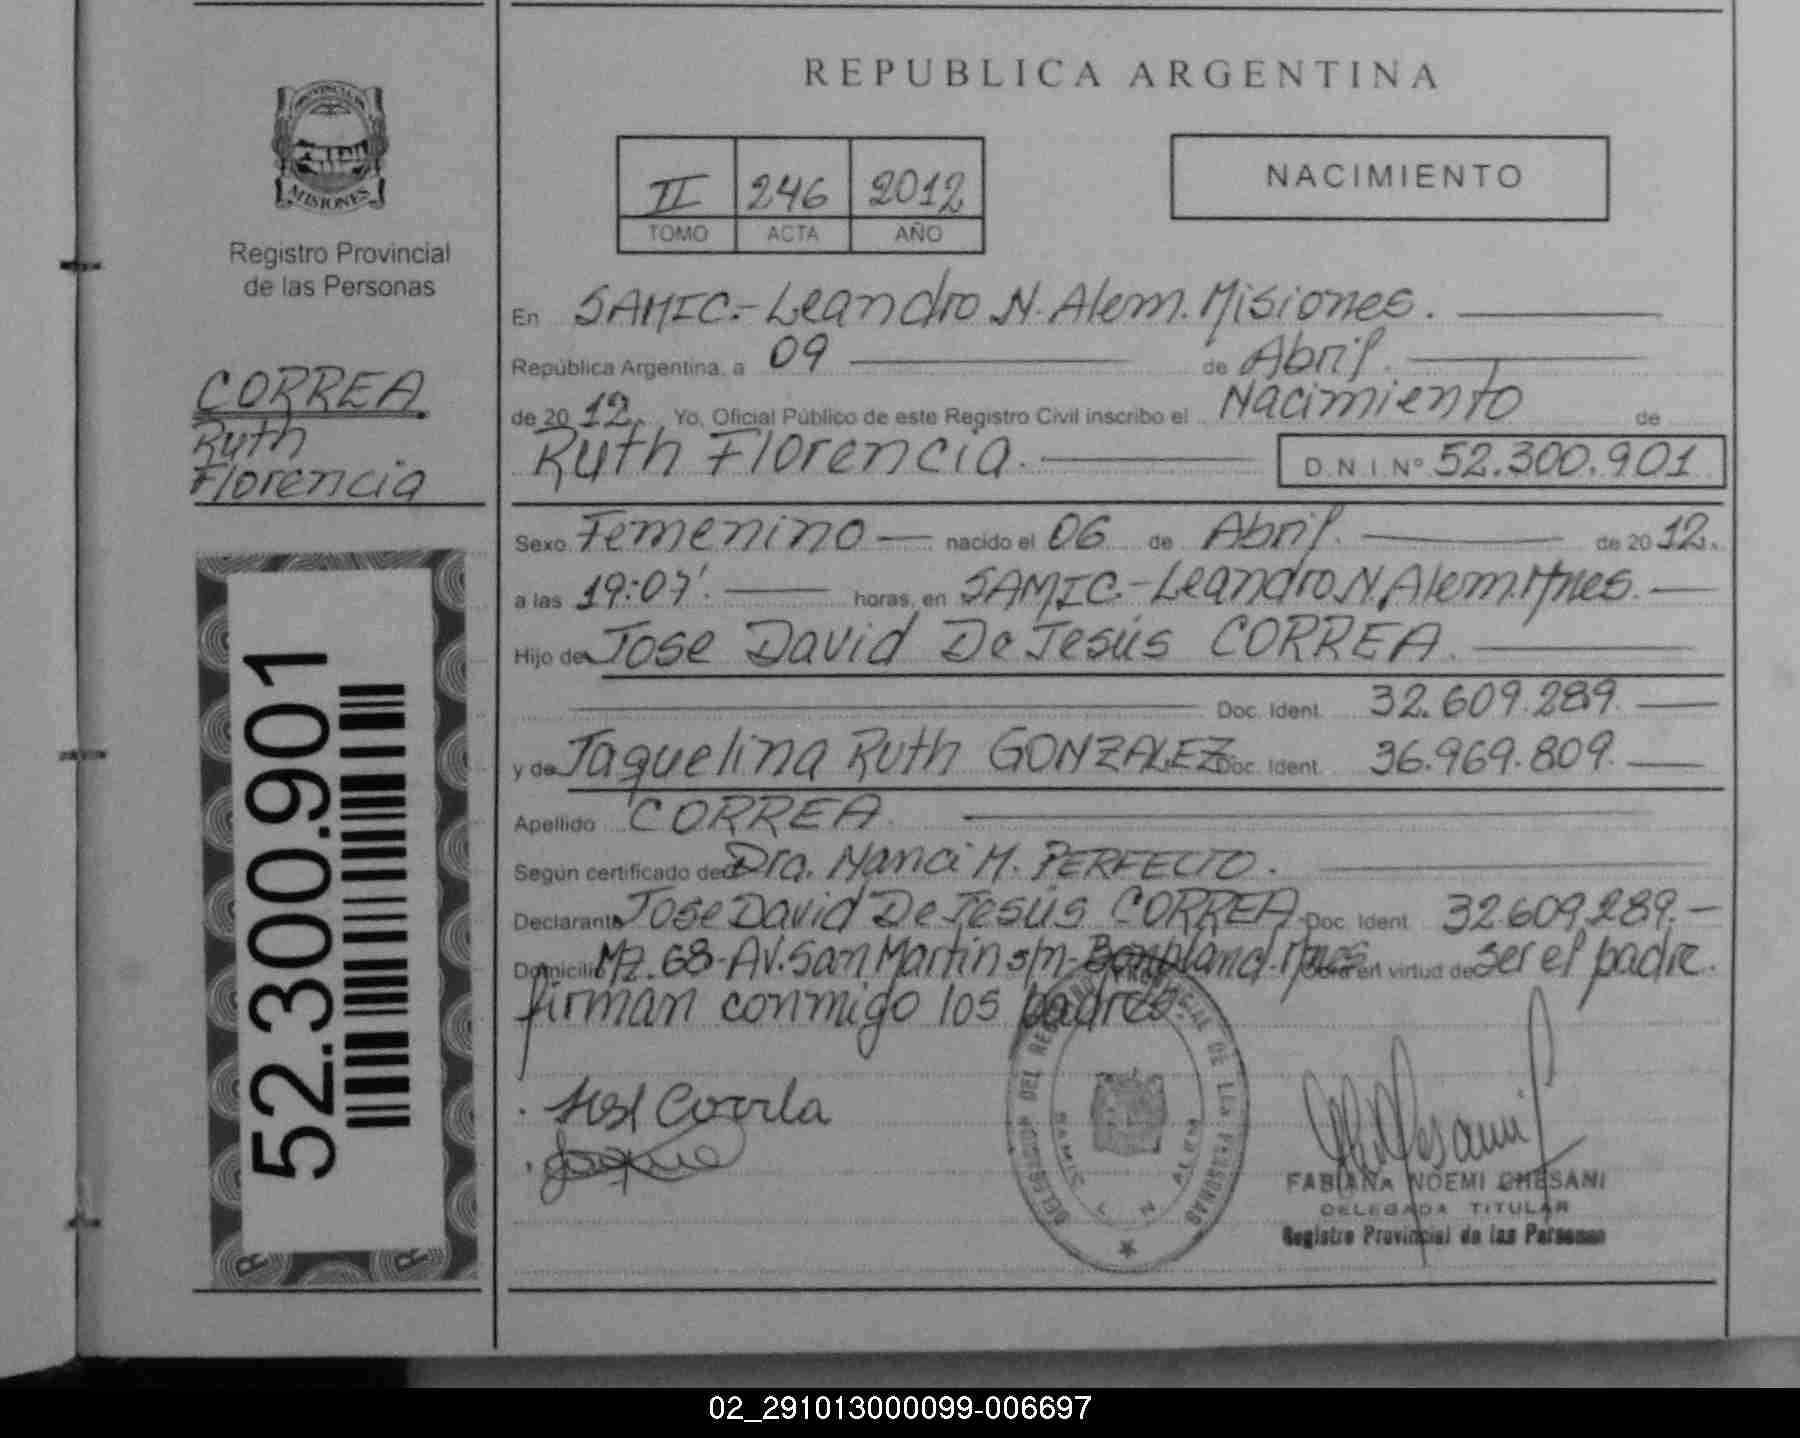 REPUBLICA ARGENTINA
PROVINCIA DE
MISIONES
Registro Provincial
de las Personas
II 246 2012
TOMO ACTA AÑO
NACIMIENTO
CORREA
Ruth
Florencia
52.300.901
En SAMIC.-Leandro N. Alem. Misiones.
República Argentina, a 09 de Abril.
de 20 12. Yo, Oficial Público de este Registro Civil inscribo el Nacimiento de
Ruth Florencia. D.N.I. Nº 52.300.901
Sexo Femenino nacido el 06 de Abril. de 20 12.
a las 19:07'. horas, en SAMIC.-Leandro N. Alem. Mnes.
Hijo de Jose David De Jesús CORREA.
Doc. Ident. 32.609.289.
y de Jaquelina Ruth GONZALEZ Doc. Ident. 36.969.809.
Apellido CORREA.
Según certificado de Dra. Nanci M. PERFECTO.
Declarante Jose David De Jesús CORREA. Doc. Ident. 32.609.289.
Domicilio Mz. 68-Av. San Martin s/n-Bonpland-Mnes. en virtud de ser el padre.
firman conmigo los padres
Jose Correa
DELEGACION DEL REGISTRO PROVINCIAL DE LAS PERSONAS
SAMIC L N ALEM
FABIANA NOEMI GHESANI
DELEGADA TITULAR
Registro Provincial de las Personas
02_291013000099-006697